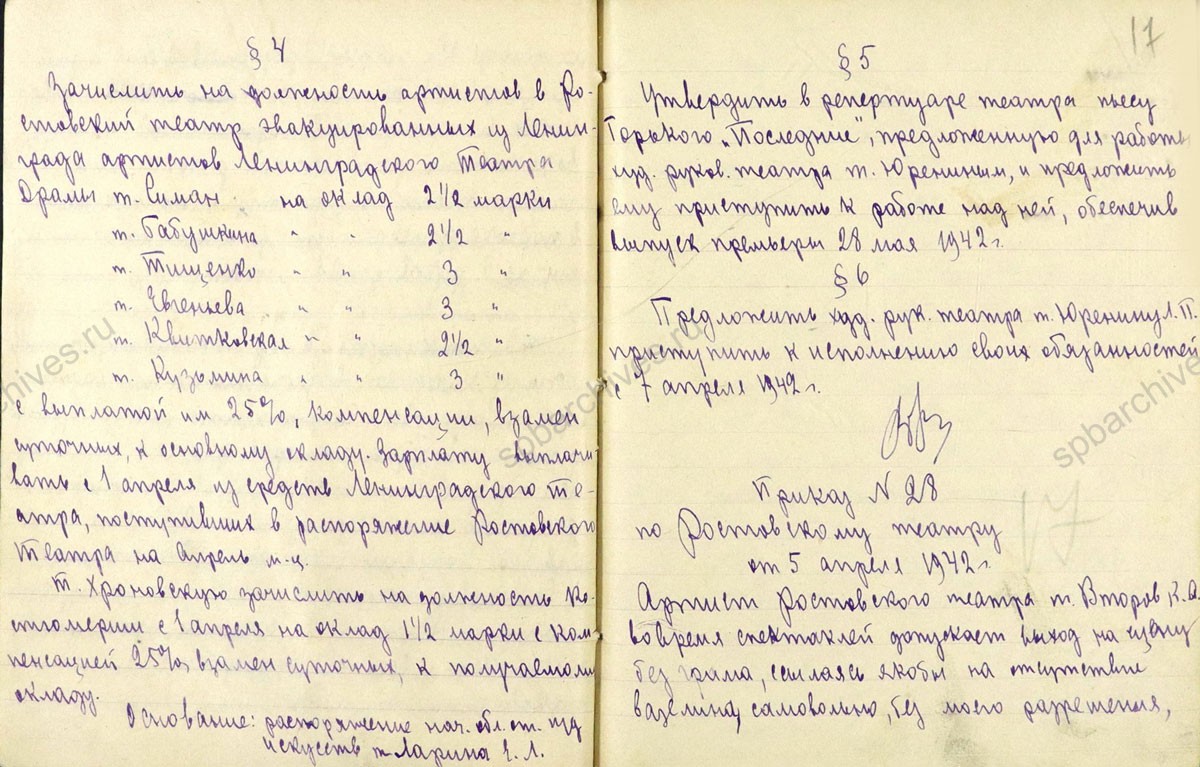 § 4
Зачислить на должность артистов в Ро-
стовский театр эвакуированных из Ленин-
града артистов Ленинградского Театра
Драмы т. Симан на оклад 2 1/2 марки
т. Бабушкина " " 2 1/2 "
т. Тищенко " " 3 "
т. Евгеньева " " 3 "
т. Квитковская " " 2 1/2 "
т. Кузьмина " " 3 "
с выплатой им 25%, компенсации, взамен
суточных, к основному окладу. Зарплату выплачи-
вать с 1 апреля из средств Ленинградского те-
атра, поступивших в распоряжение Ростовского
театра на апрель м-ц.
Т. Хроновскую зачислить на должность ко-
стюмерши с 1 апреля на оклад 1 1/2 марки с ком-
пенсацией 25%, взамен суточных, к получаемому
окладу.
Основание: распоряжение нач. обл. от. п/д
искусств т. Ларина Г. Л.
17
§ 5
Утвердить в репертуаре театра пьесу
Горького „Последние", предложенную для работы
худ. руков. театра т. Юрениным, и предложить
ему приступить к работе над ней, обеспечив
выпуск премьеры 28 мая 1942 г.
§ 6
Предложить худ. рук. театра т. Юренину Л. П.
приступить к исполнению своих обязанностей
с 7 апреля 1942 г.
Приказ N 28
по Ростовскому театру
от 5 апреля 1942 г.
17
Артист Ростовского театра т. Второв, К. А.
во время спектаклей допускает выход на сцену
без грима, ссылаясь якобы на отсутствие
вазелина, самовольно, без моего разрешения,
spbarchives.ru
spbarchives.ru
spbarchives.ru